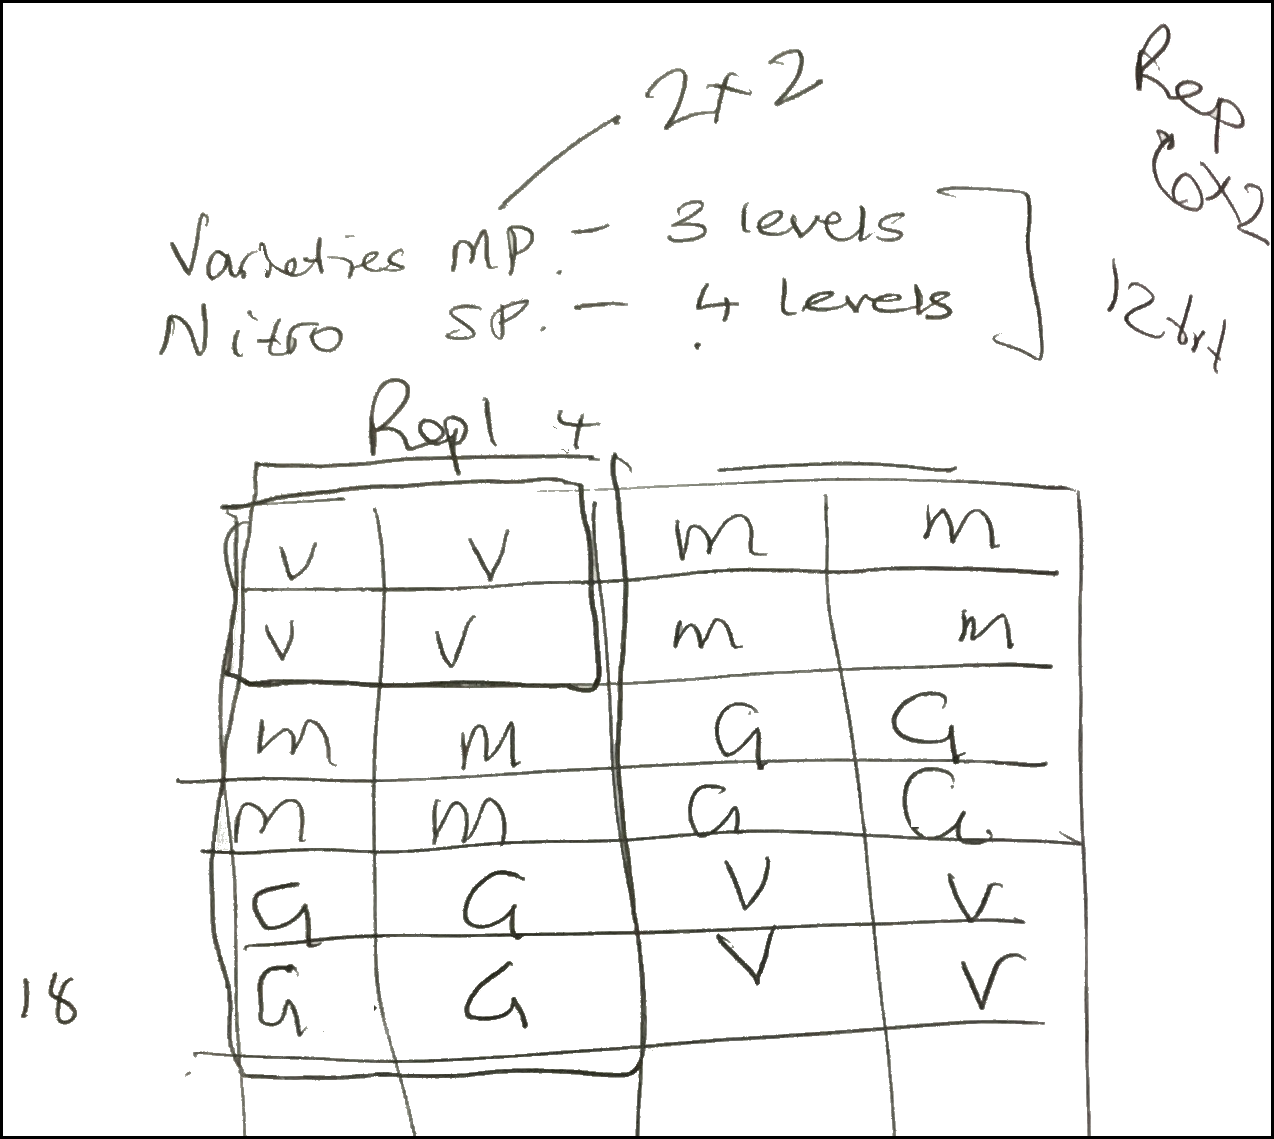 2x2
Rep
6x2
Varieties MP. - 3 levels
Nitro SP. - 4 levels
12trt
Rep1 4
V V m m
V V m m
m m G G
m m G G
G G V V
G G V V
18